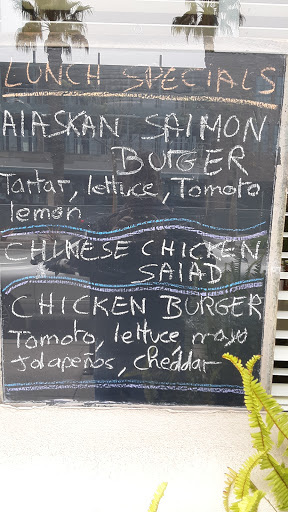 LUNCH SPECIALS
AlASKAN SAlMON
BURGER
Tartar, lettuce, Tomato
lemon
CHINESE CHICKEN
SAlAD
CHICKEN BURGER
Tomato, lettuce, mayo
Jalapeños, cheddar